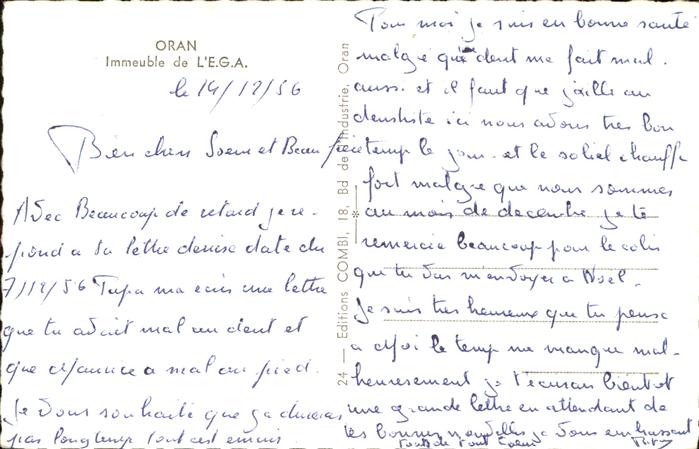 ORAN
Immeuble de L'E.G.A.
le 14/12/56
Bien cher Soeur et Beau frère
Avec Beaucoup de retard je re-
pond a ta lettre denise date du
7/12/56 Papa ma ecris une lettre
que tu avait mal au dent et
que a mal au pied.
Je vous souhaite que ça durera
pas longtemp tout est
24 — Editions COMBI, 18, Bd de l'Industrie, Oran
Pour moi je suis en bonne santé
malgré que dent me fait mal.
aussi et il faut que j'aille au
denstiste ici nous avons tres bon
temp le jour et le soliel chauffe
fort malgre que nous sommes
au mois de decembre je te
remercie beaucoup pour le colis
que tu vas m'envoyer a Noel.
Je suis tres heureux que tu pense
a moi le temp me manque mal-
heureusement je t'écrirai bientot
une grande lettre en attendant de
tes bonnes nouvelles je vous embrassent
tous de tout Coeur